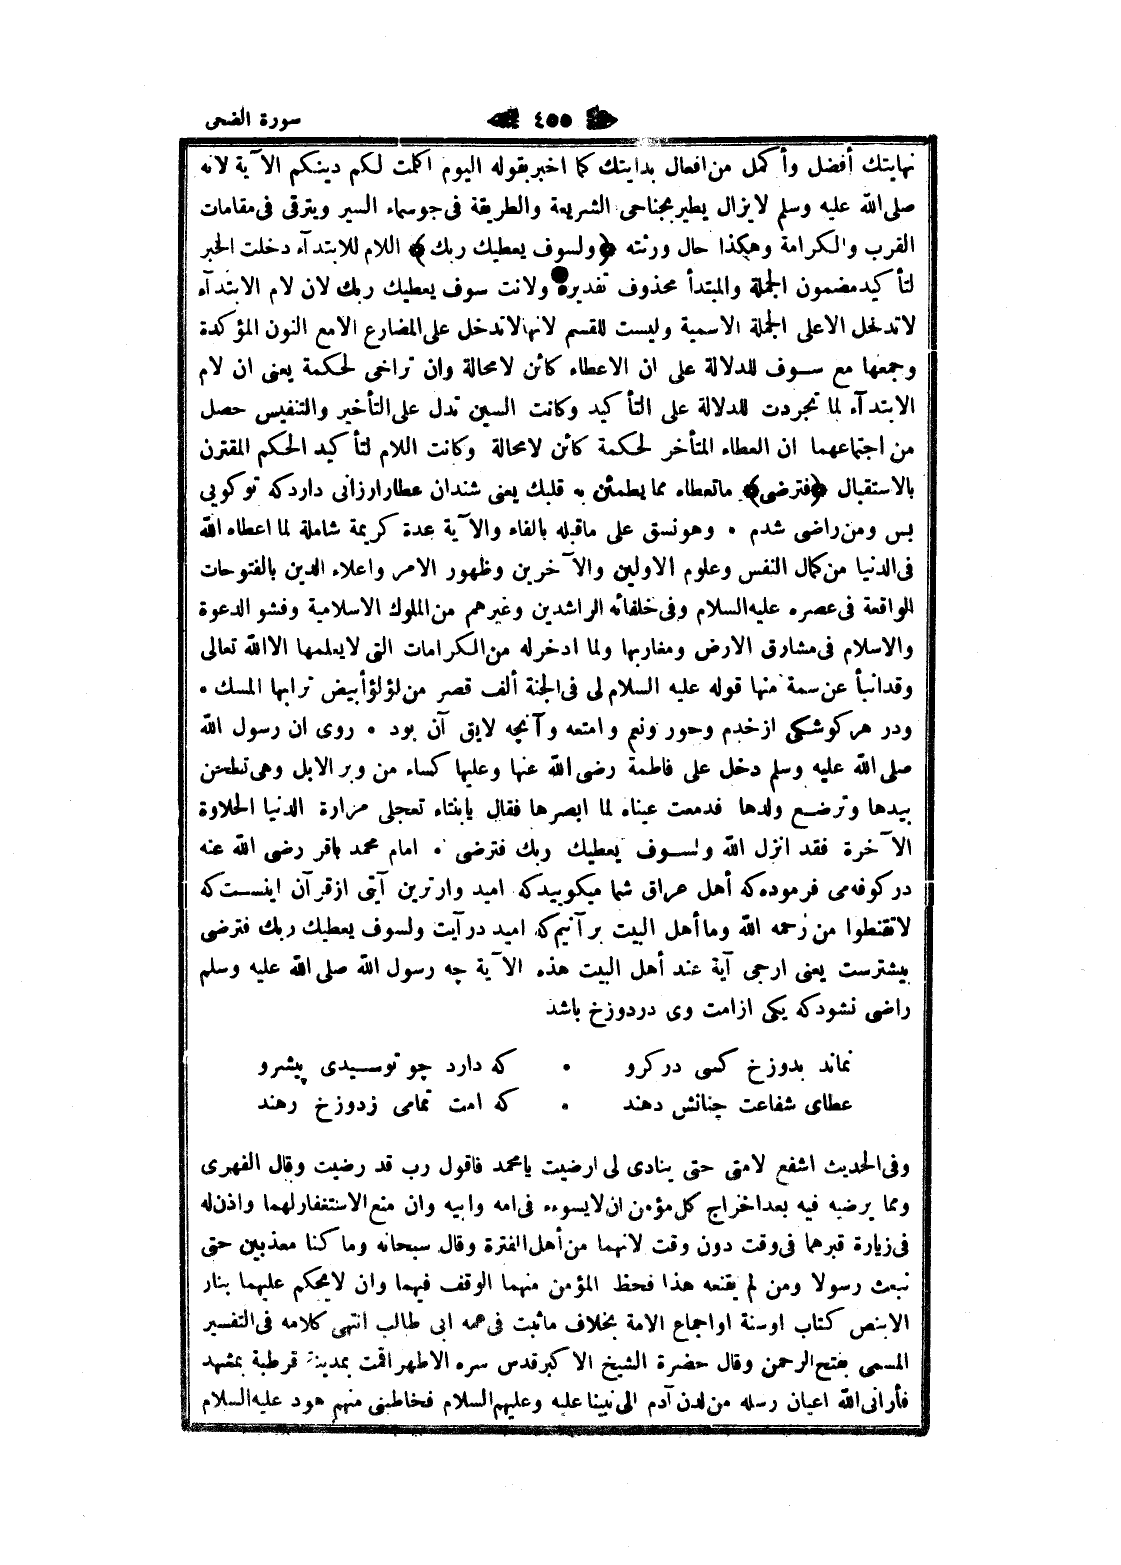 سورة الضحى ٤٥٥
نهايتك أفضل وأكمل من افعال بدايتك كما اخبر بقوله اليوم اكملت لكم دينكم الآية لانه
صلى الله عليه وسلم لايزال يطير بجناحى الشريعة والطريقة فى جو سماء السير ويترقى فى مقامات
القرب والكرامة وهكذا حال ورثته ﴿ولسوف يعطيك ربك﴾ اللام للابتدآء دخلت الخبر
لتأكيد مضمون الجملة والمبتدأ محذوف تقديره ولانت سوف يعطيك ربك لان لام الابتدآء
لاتدخل الاعلى الجملة الاسمية وليست للقسم لانها لاتدخل على المضارع الامع النون المؤكدة
وجمعها مع سوف للدلالة على ان الاعطاء كائن لامحالة وان تراخى لحكمة يعنى ان لام
الابتدآء لما تجردت للدلالة على التأكيد وكانت السين تدل على التأخير والتنفيس حصل
من اجتماعهما ان العطاء المتأخر لحكمة كائن لامحالة وكانت اللام لتأكيد الحكم المقترن
بالاستقبال ﴿فترضى﴾ ماتعطاه مما يطمئن به قلبك يعنى شندان عطا ارزانى داردكه توكويى
بس ومن راضى شدم • وهو نسق على ماقبله بالفاء والآية عدة كريمة شاملة لما اعطاه الله
فى الدنيا من كمال النفس وعلوم الاولين والآخرين وظهور الامر واعلاء الدين بالفتوحات
الواقعة فى عصره عليه السلام وفى خلفائه الراشدين وغيرهم من الملوك الاسلامية وفشو الدعوة
والاسلام فى مشارق الارض ومغاربها ولما ادخر له من الكرامات التى لايعلمها الاالله تعالى
وقد انبأ عن سمة منها قوله عليه السلام لى فى الجنة ألف قصر من لؤلؤ أبيض ترابها المسك •
ودر هر كوشكى از خدم وحور ونيم و امتعه و آنچه لايق آن بود • روى ان رسول الله
صلى الله عليه وسلم دخل على فاطمة رضى الله عنها وعليها كساء من وبر الابل وهى تطحن
بيدها وترضع ولدها فدمعت عيناه لما ابصرها فقال يابنتاه تعجلى مرارة الدنيا لحلاوة
الآخرة فقد انزل الله ولسوف يعطيك ربك فترضى • امام محمد باقر رضى الله عنه
در كوفه مى فرموده كه أهل عراق شما ميكوييدكه اميد وارترين آيتى از قرآن اينست كه
لاتقنطوا من رحمه الله وما أهل البيت بر آنيم كه اميد در آيت ولسوف يعطيك ربك فترضى
بيشترست يعنى ارجى آية عند أهل البيت هذه الآية چه رسول الله صلى الله عليه وسلم
راضى نشودكه يكى از امت وى در دوزخ باشد
نماند بدوزخ كسى در كرو • كه دارد چو تو سيدى پيشرو
عطاى شفاعت چنانش دهند • كه امت تمامى زدوزخ رهند
وفى الحديث اشفع لامتى حتى ينادى لى ارضيت يامحمد فاقول رب قد رضيت وقال الفهرى
ومما يرضيه فيه بعد اخراج كل مؤمن ان لايسوءه فى امه وابيه وان منع الاستغفار لهما واذن له
فى زيارة قبرهما فى وقت دون وقت لانهما من أهل الفترة وقال سبحانه وما كنا معذبين حتى
نبعث رسولا ومن لم يقنعه هذا فحظ المؤمن منهما الوقف فيهما وان لايحكم عليهما بنار
الابنص كتاب اوسنة او اجماع الامة بخلاف ماثبت فى عمه ابى طالب انتهى كلامه فى التفسير
المسمى بفتح الرحمن وقال حضرة الشيخ الاكبر قدس سره الاطهر اقمت بمدينة قرطبة بمشهد
فأرانى الله اعيان رسله من لدن آدم الى نبينا عليه وعليهم السلام فخاطبنى منهم هود عليه السلام